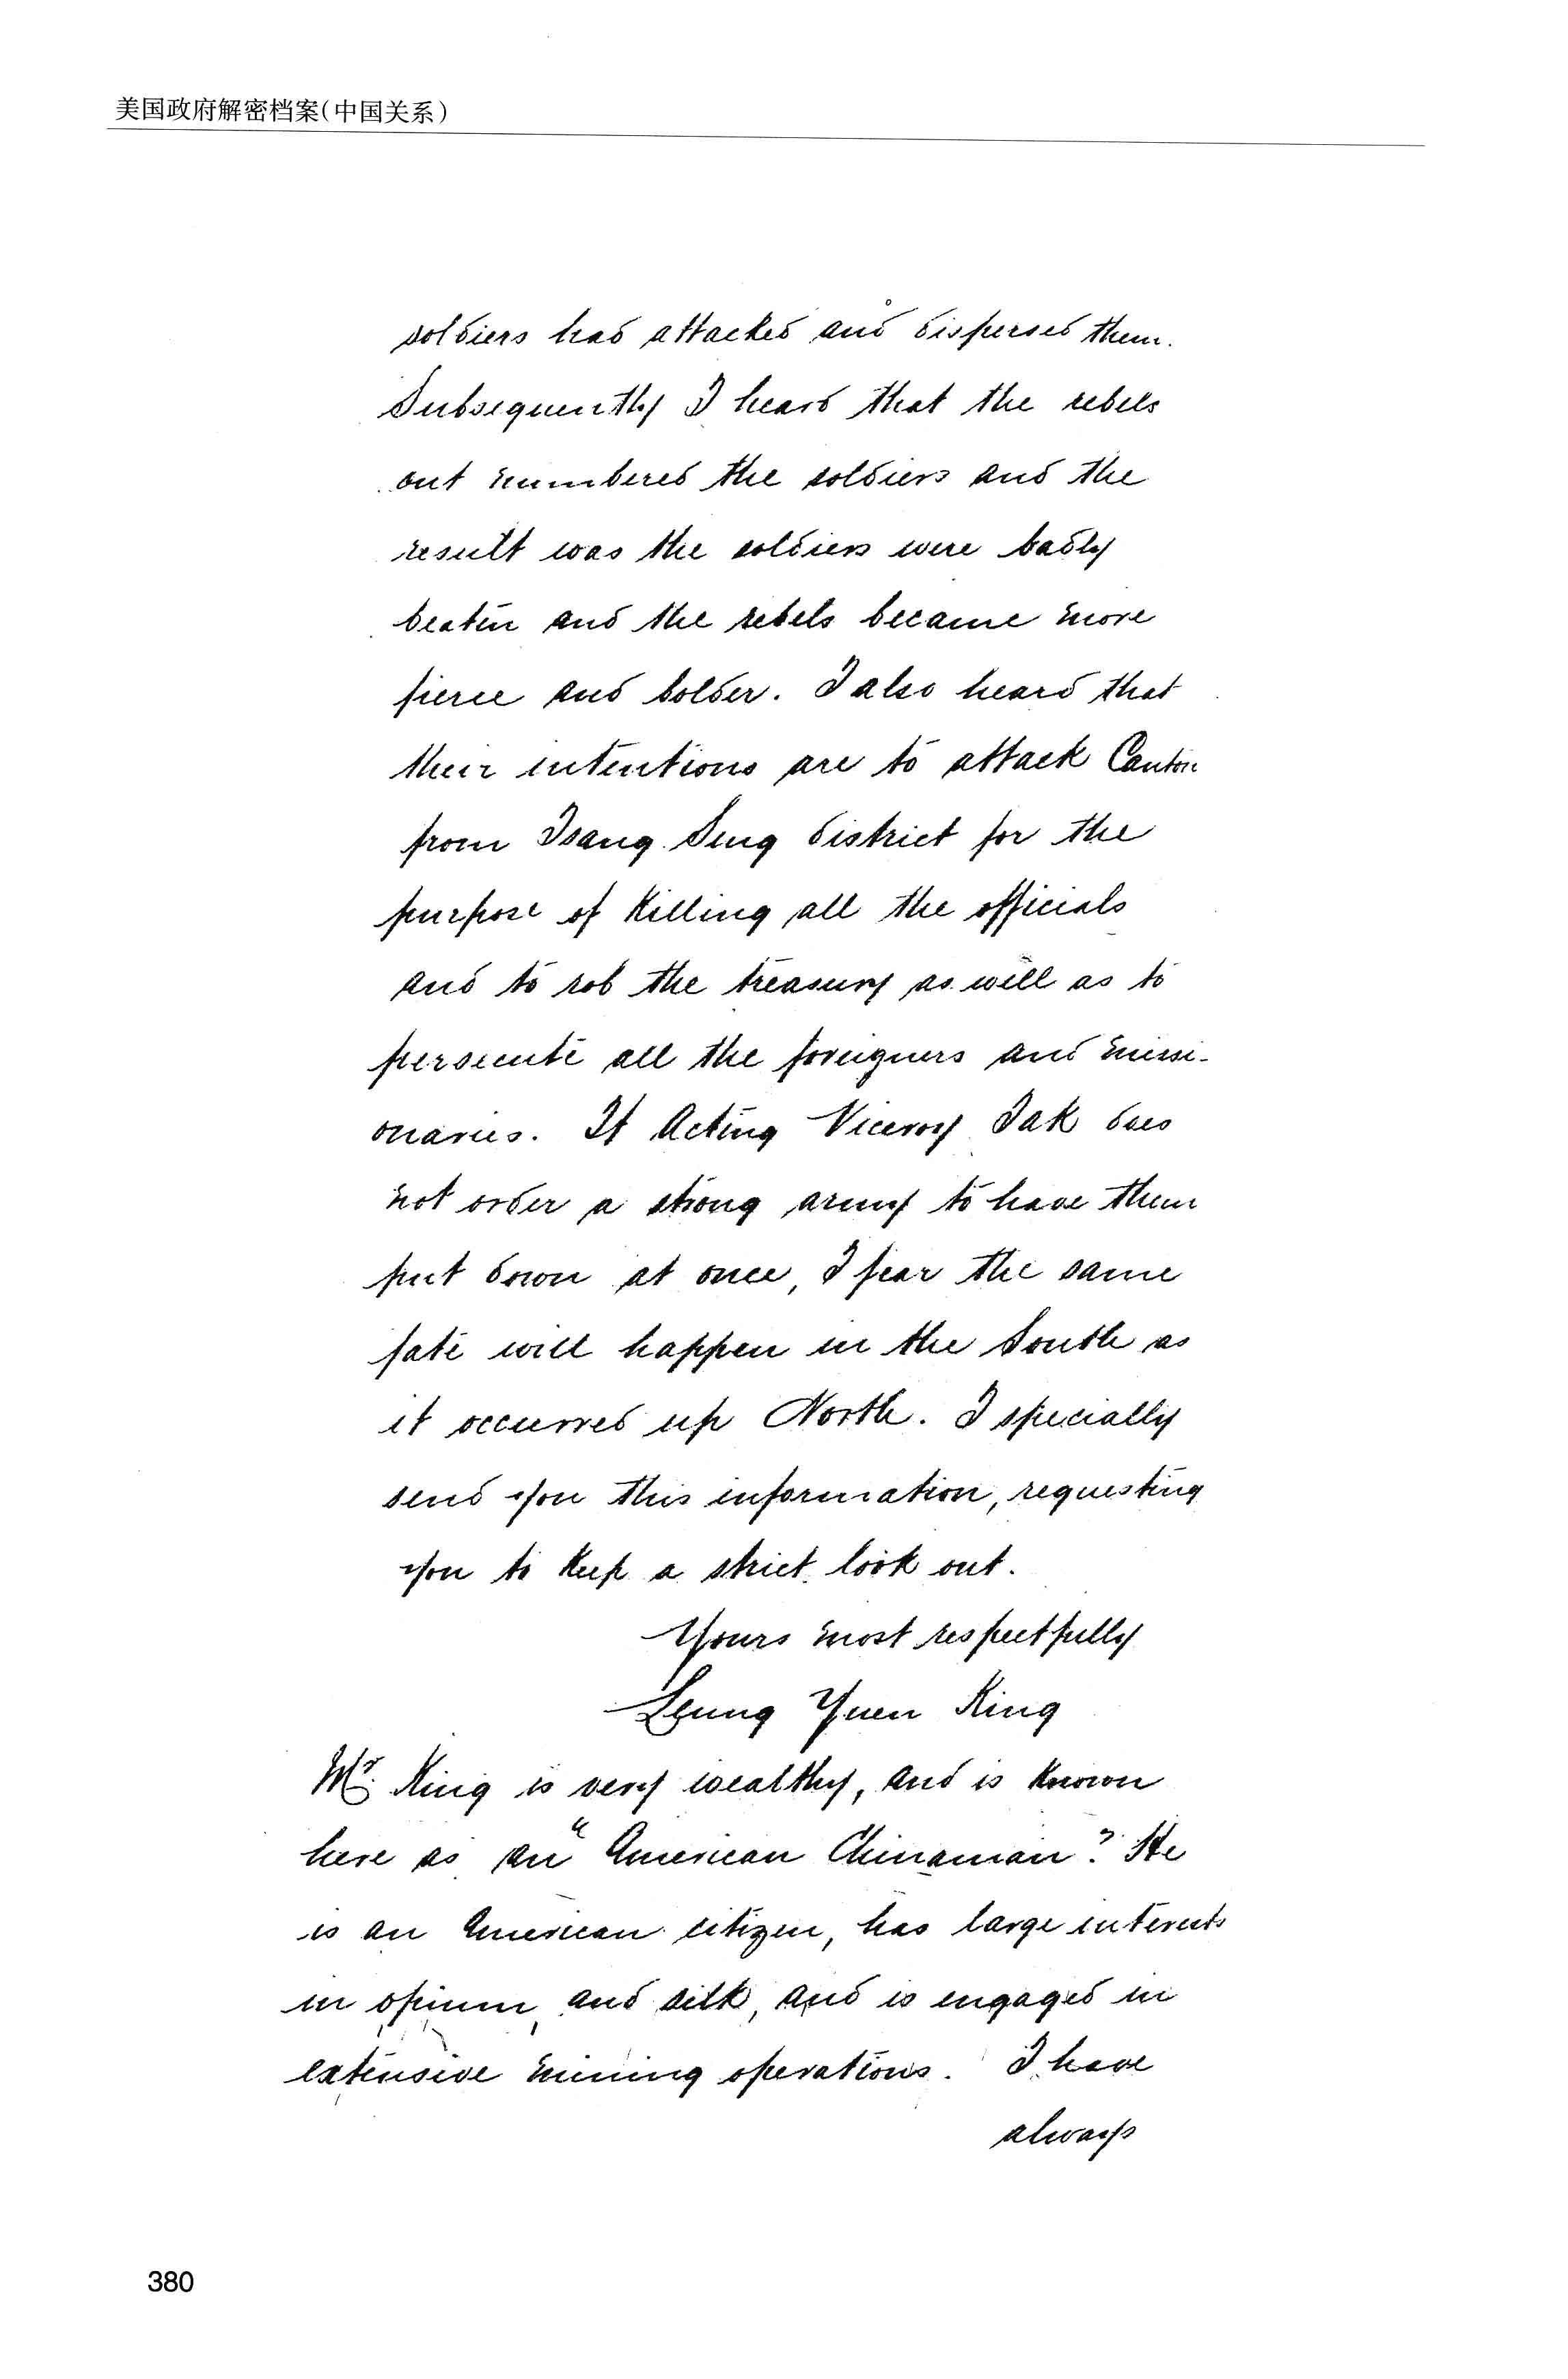 美国政府解密档案(中国关系)
soldiers had attacked and dispersed them.
Subsequently I heard that the rebels
out numbered the soldiers and the
result was the soldiers were badly
beaten and the rebels became more
fierce and bolder. I also heard that
their intentions are to attack Canton
from Tsang Sing district for the
purpose of killing all the officials
and to rob the treasury as well as to
persecute all the foreigners and missi-
onaries. If Acting Viceroy Tak does
not order a strong army to have them
put down at once, I fear the same
fate will happen in the South as
it occurred up North. I specially
send you this information, requesting
you to keep a strict look out.
Yours most respectfully
Leung Yuen King
Mr. King is very wealthy, and is known
here as an "American Chinaman". He
is an American citizen, has large interests
in opium, and silk, and is engaged in
extensive mining operations. I have
always
380